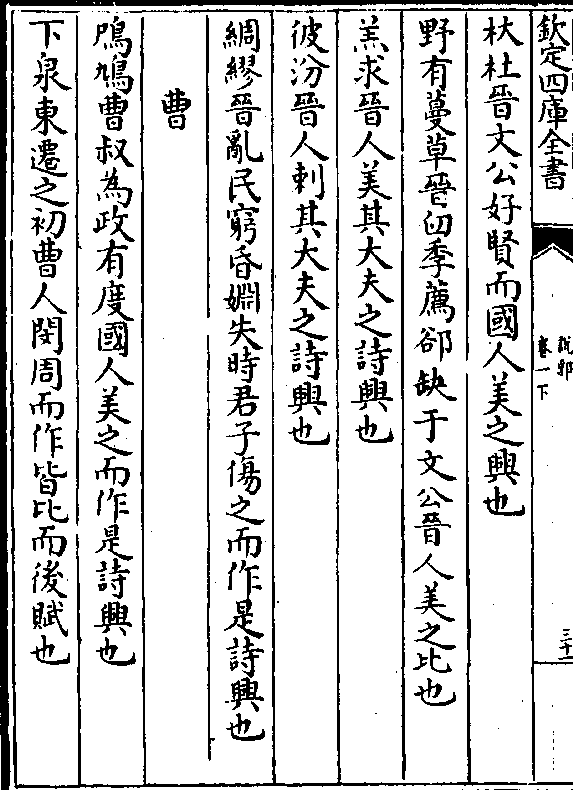 欽定四庫全書
說郛
卷一下
三十一
杕杜晉文公好賢而國人美之興也
野有蔓草晉臼季薦郤缺于文公晉人美之比也
羔求晉人美其大夫之詩興也
彼汾晉人刺其大夫之詩興也
綢繆晉亂民窮昏婣失時君子傷之而作是詩興也
曹
鳲鳩曹叔為政有度國人美之而作是詩興也
下泉東遷之初曹人閔周而作皆比而後賦也